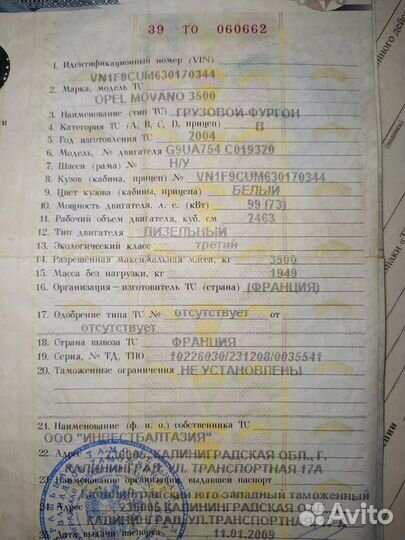 39 ТО 060662
1. Идентификационный номер (VIN)
VN1F9CUM630170344
2. Марка, модель ТС
OPEL MOVANO 3500
3. Наименование (тип ТС) ГРУЗОВОЙ-ФУРГОН
4. Категория ТС (A, B, C, D, прицеп) В
5. Год изготовления ТС 2004
6. Модель, № двигателя G9UA754 C019320
7. Шасси (рама) № Н/У
8. Кузов (кабина, прицеп) № VN1F9CUM630170344
9. Цвет кузова (кабины, прицепа) БЕЛЫЙ
10. Мощность двигателя, л. с. (кВт) 99 (73)
11. Рабочий объем двигателя, куб. см 2463
12. Тип двигателя ДИЗЕЛЬНЫЙ
13. Экологический класс третий
14. Разрешенная максимальная масса, кг 3500
15. Масса без нагрузки, кг 1949
16. Организация—изготовитель ТС (страна) (ФРАНЦИЯ)
17. Одобрение типа ТС № отсутствует от
отсутствует
18. Страна вывоза ТС ФРАНЦИЯ
19. Серия, № ТД, ТПО 10226030/231208/0035541
20. Таможенные ограничения НЕ УСТАНОВЛЕНЫ
21. Наименование (ф. и. о.) собственника ТС
ООО "ИНВЕСТБАЛТАЗИЯ"
22. Адрес 236005 КАЛИНИНГРАДСКАЯ ОБЛ., Г.
КАЛИНИНГРАД, УЛ. ТРАНСПОРТНАЯ 17А
23. Наименование организации, выдавшей паспорт
Калининградский юго-западный таможенный
24. Адрес 236005 КАЛИНИНГРАДСКАЯ ОБЛ
КАЛИНИНГРАД, УЛ. ТРАНСПОРТНАЯ
25. Дата выдачи паспорта 11.01.2009
Avito